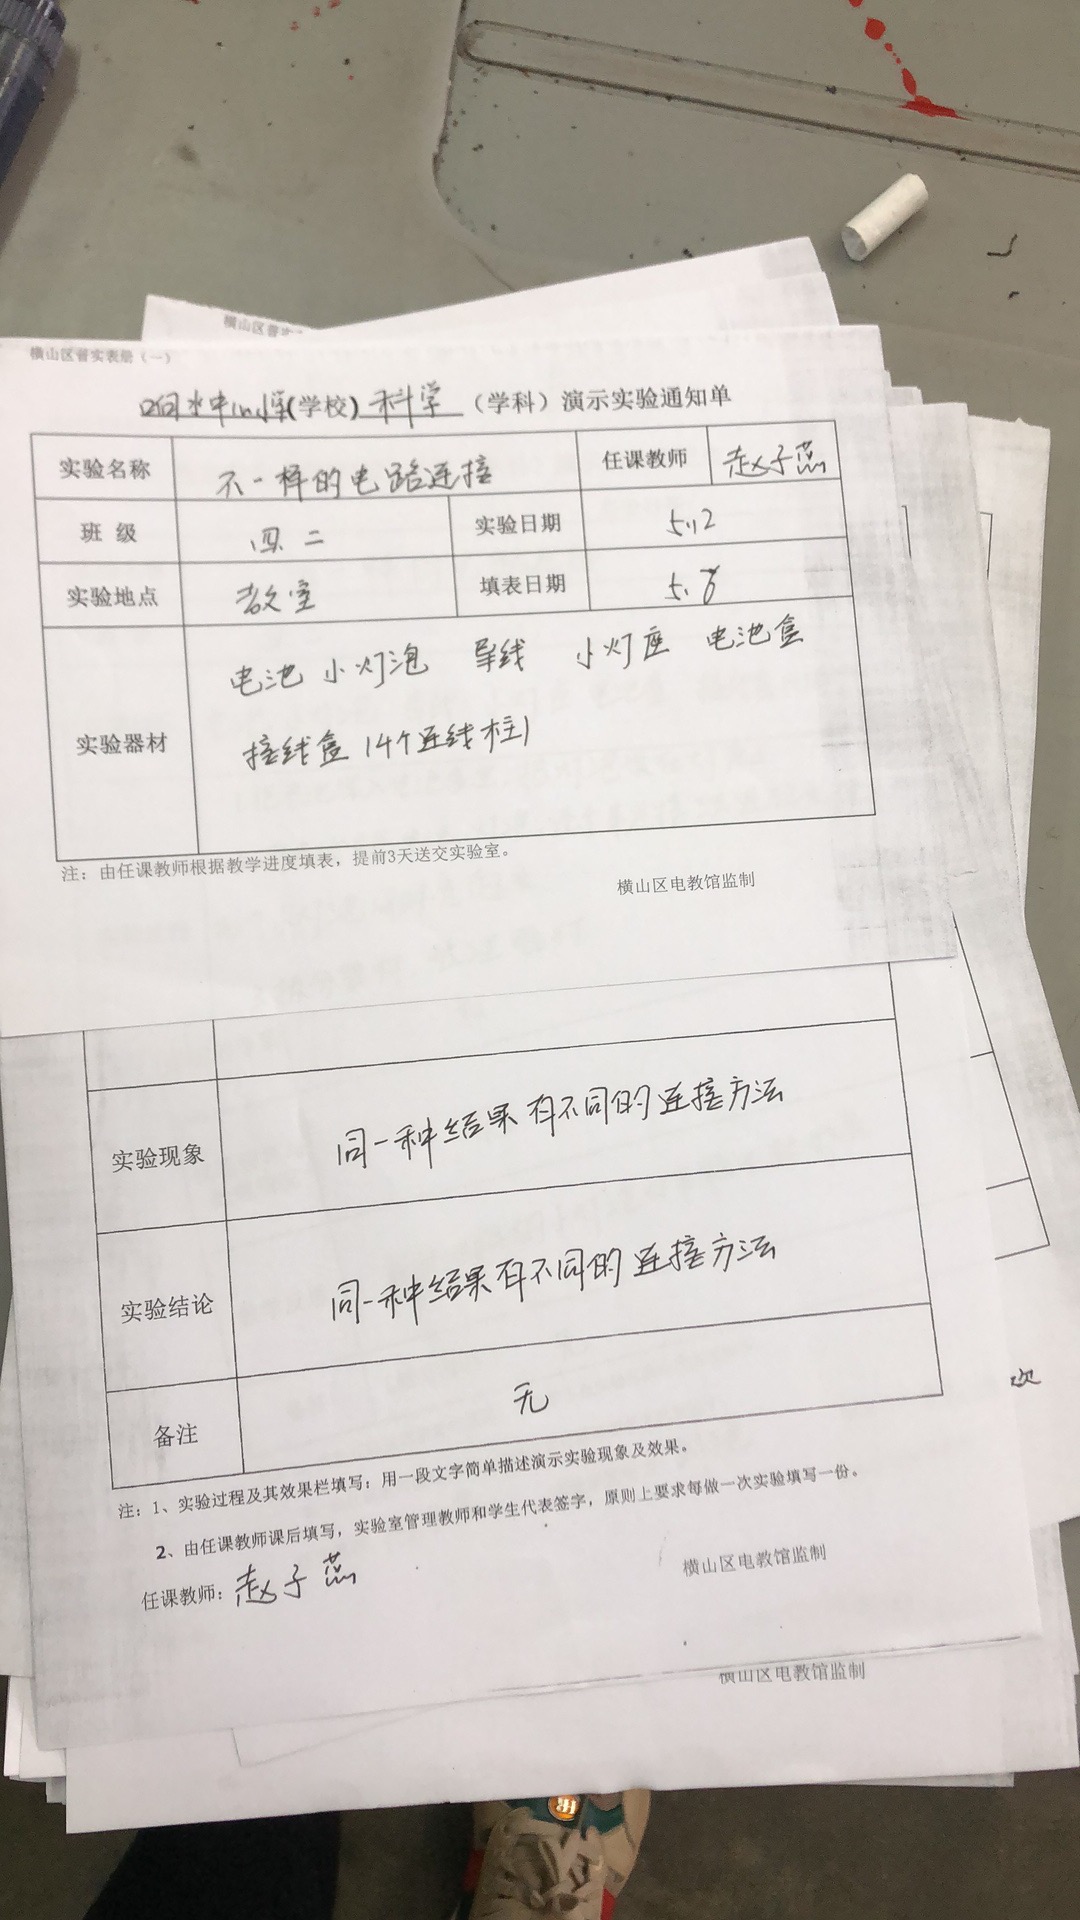 横山区普实表册（一）
响水中心小学(学校) 科学 （学科）演示实验通知单
实验名称 不一样的电路连接 任课教师 赵子燕
班 级 四二 实验日期 5.12
实验地点 教室 填表日期 5.8
电池 小灯泡 导线 小灯座 电池盒
实验器材 接线盒（4个连线柱）
注：由任课教师根据教学进度填表，提前3天送交实验室。
横山区电教馆监制
实验现象 同一种结果有不同的连接方法
实验结论 同一种结果有不同的连接方法
备注 无
注：1、实验过程及其效果栏填写：用一段文字简单描述演示实验现象及效果。
2、由任课教师课后填写，实验室管理教师和学生代表签字，原则上要求每做一次实验填写一份。
任课教师：赵子燕
横山区电教馆监制
横山区电教馆监制
次